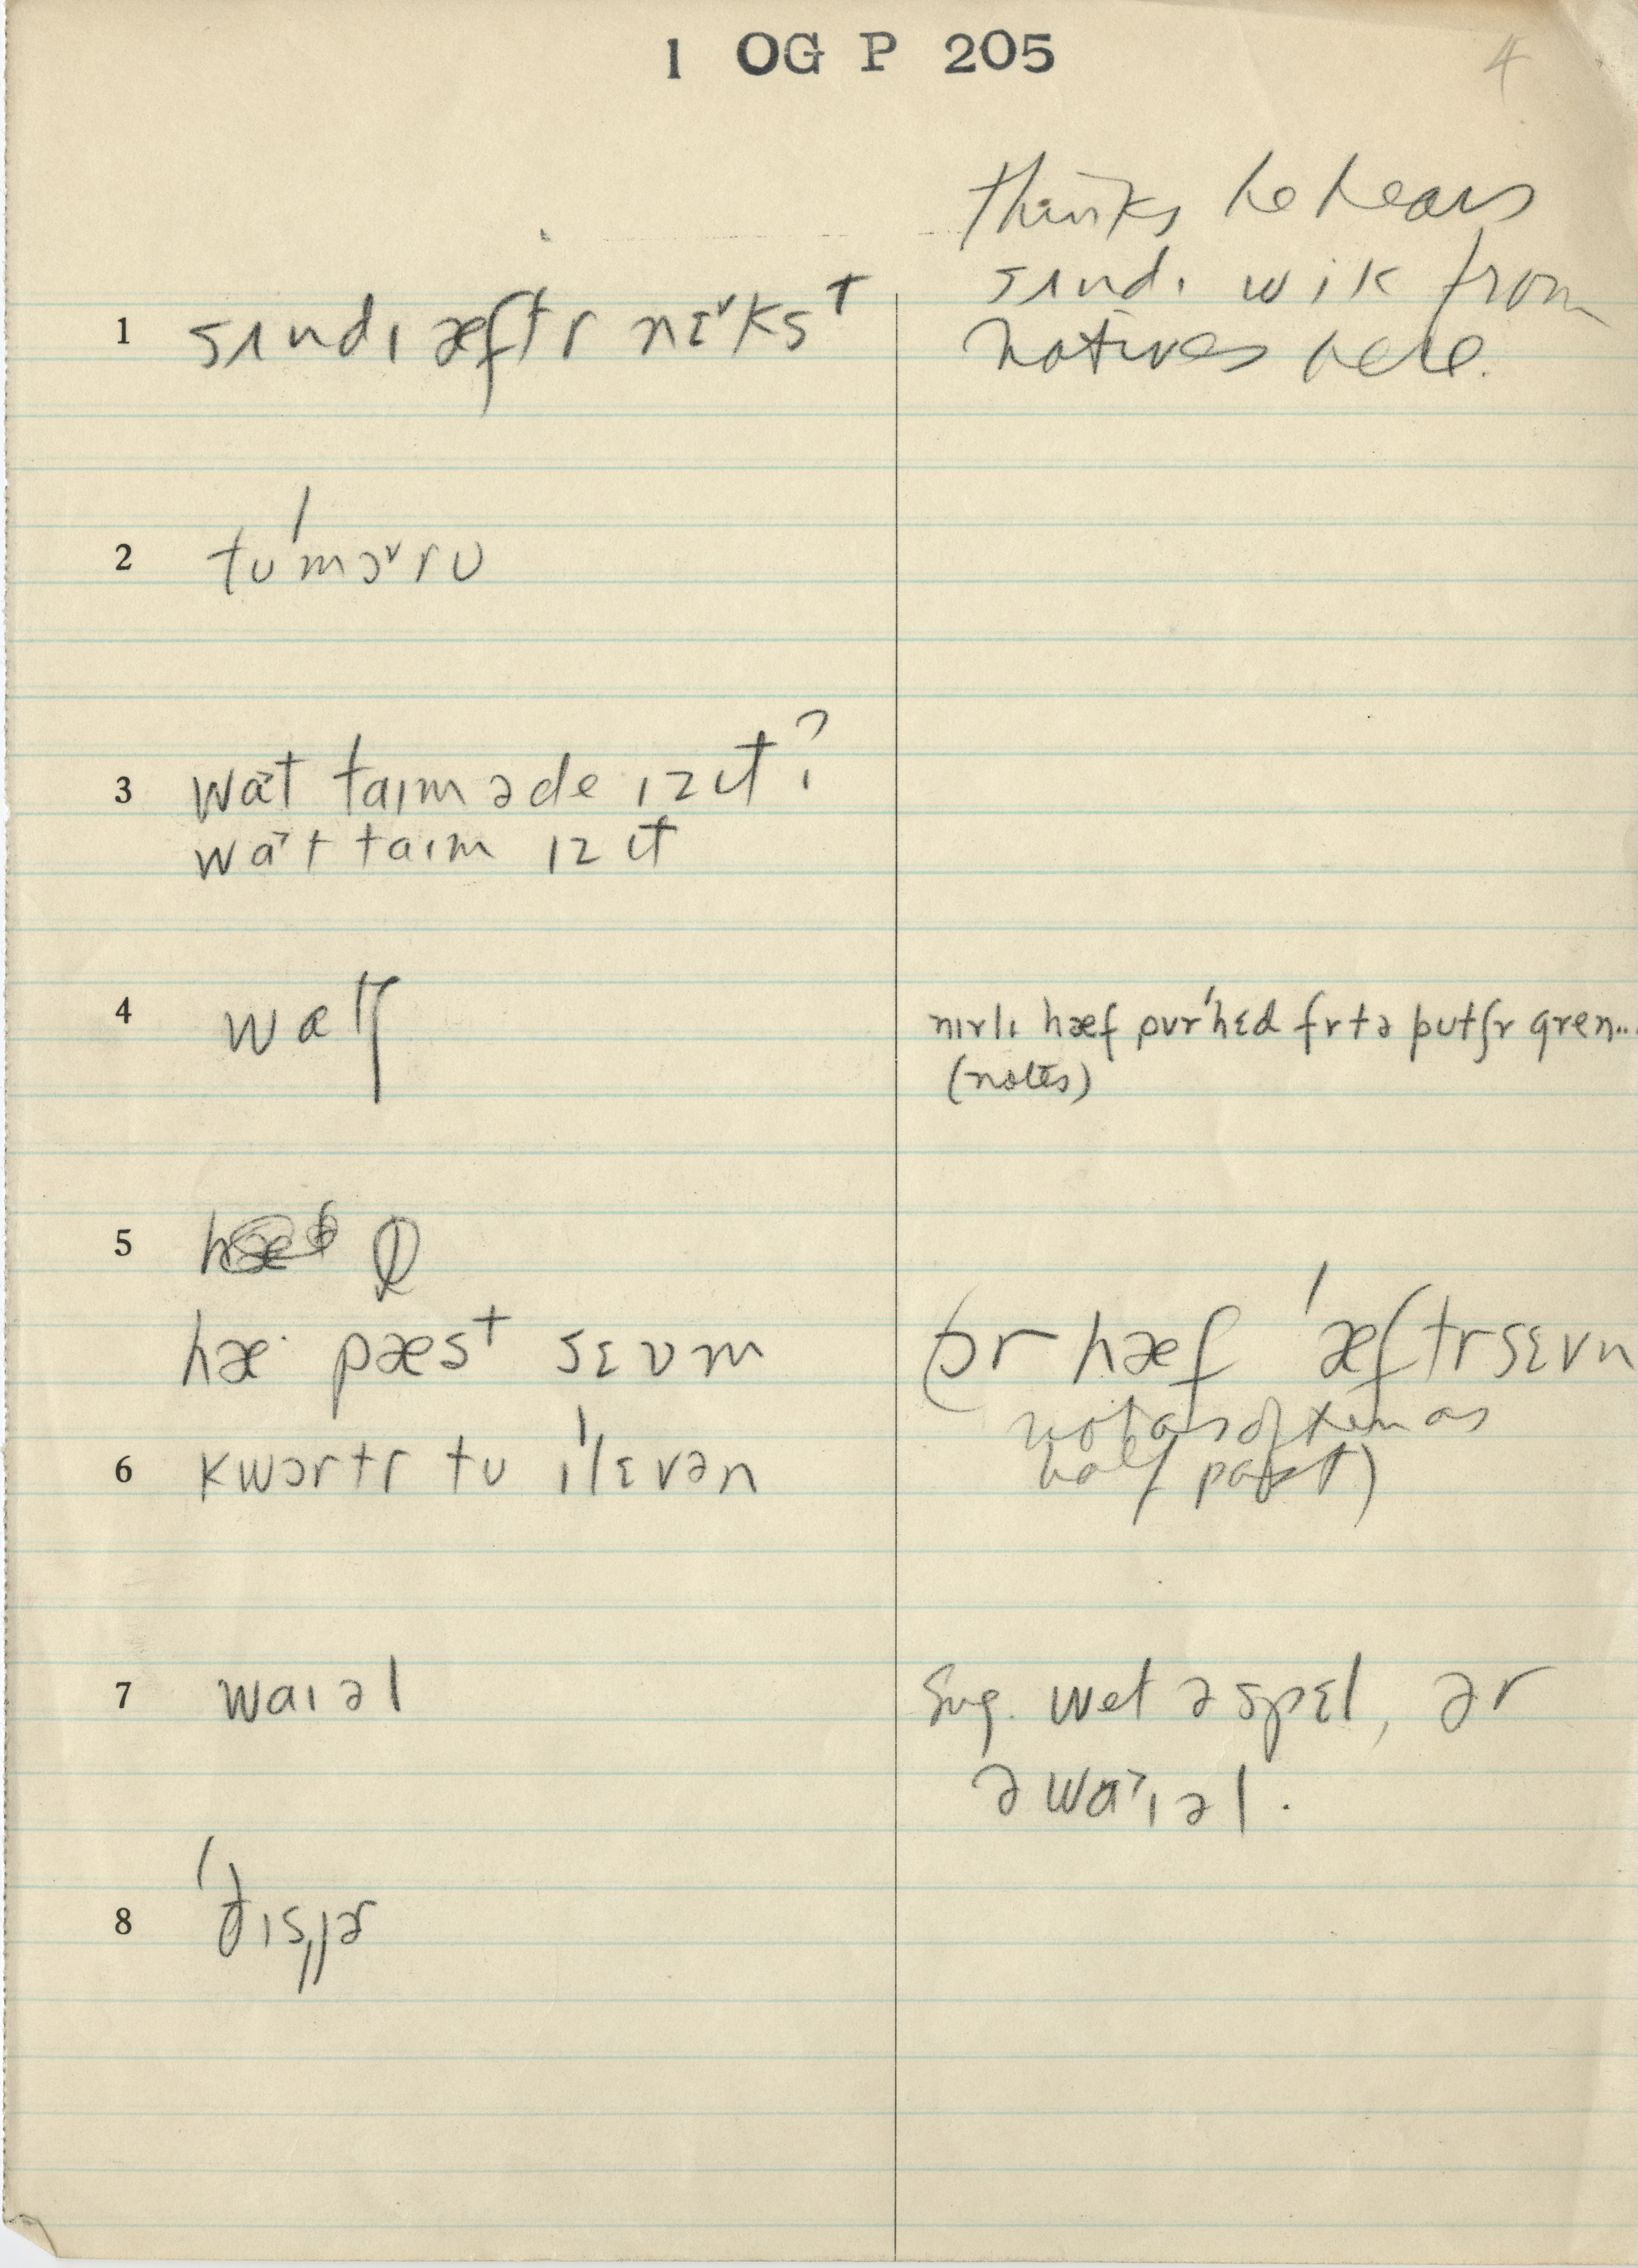 1 OG P 205
4
thinks he hears
sʌndɪ wik from
natives here.
1 sʌndɪ æftr nɛ˅kst
2 tu'mɔ˅ru
3 wa˃t taɪm ə de ɪz ɪt?
wa˃t taɪm ɪz ɪt
4 watʃ
nɪrlɪ hæf ovr'hɛd frtə putʃr gren...
(notes)
5
hæ· pæst sɛvm
(ɔr hæf 'æftr sɛvn
not as often as
half past)
6 kwɔrtr tu ɪ'lɛvən
7 waɪəl
Sug. wet ə spɛl, ər
ə wa˃ɪəl.
8